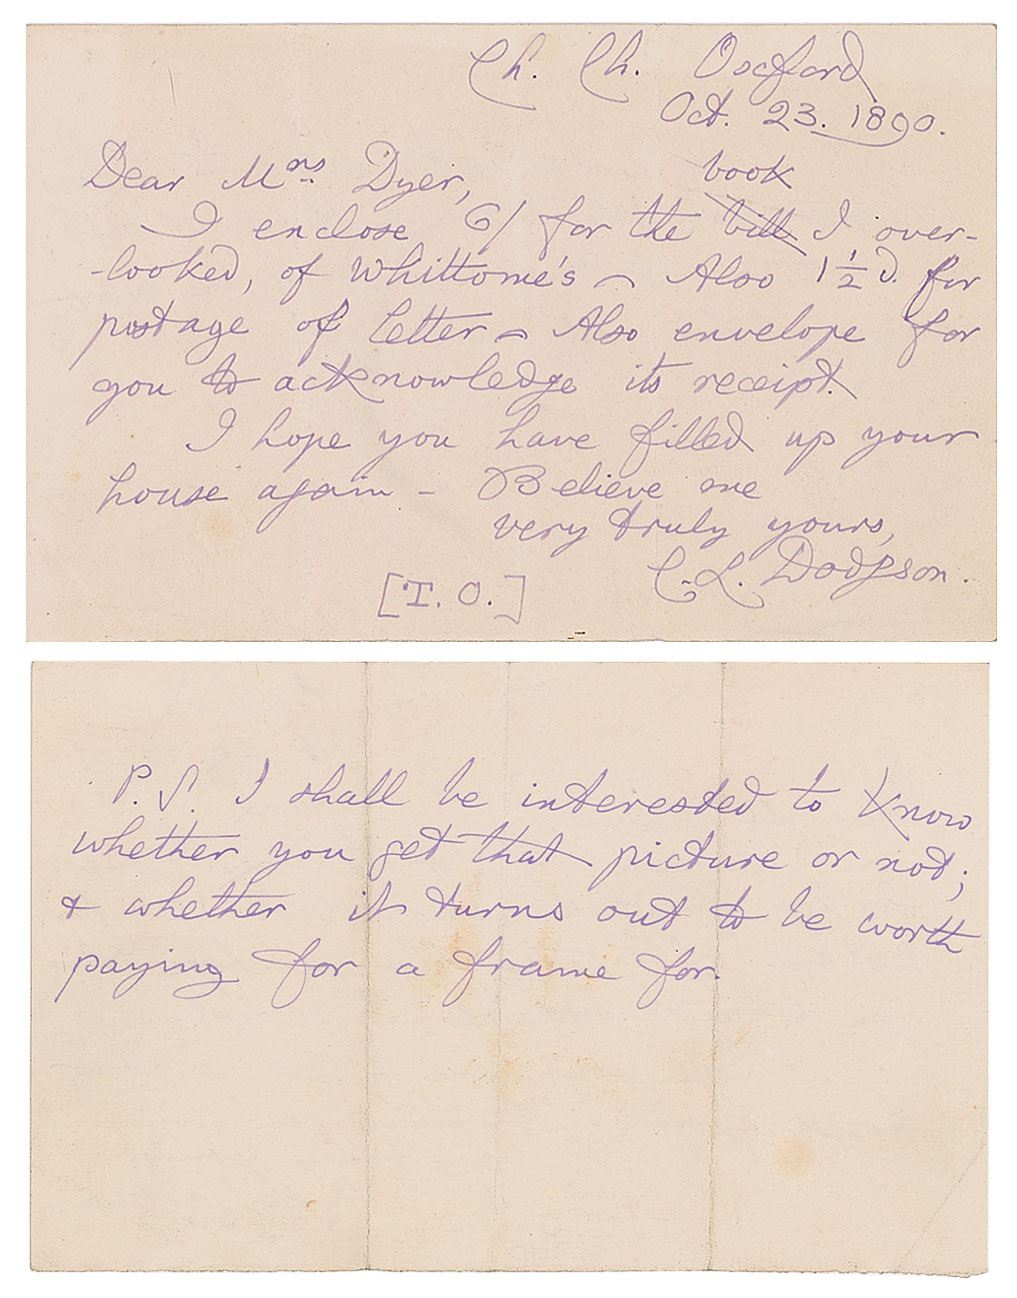 Ch. Ch. Oxford
Oct. 23. 1890.
Dear Mrs. Dyer,
book
I enclose 6/ for the bill I over-
-looked, of Whittome's – Also 1½d. for
postage of letter – Also envelope for
you to acknowledge its receipt.
I hope you have filled up your
house again – Believe me
very truly yours,
C. L. Dodgson.
[T. O.]
P.S. I shall be interested to know
whether you get that picture or not;
& whether it turns out to be worth
paying for a frame for.